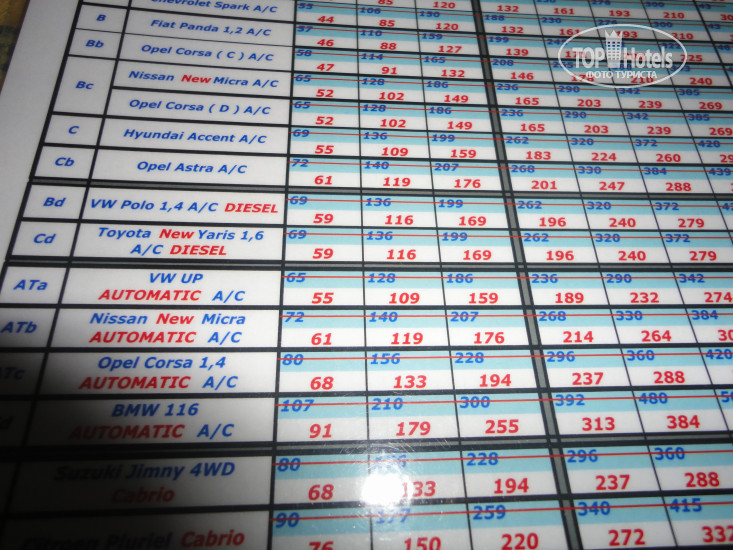 Chevrolet Spark A/C 55 106 150 188 230
44 85 120 132 161 193 210
B Fiat Panda 1,2 A/C 57 110 159 199
46 88 127 139 225
Bb Opel Corsa ( C ) A/C 58 114 165 208
47 91 132 146 210 240
Bc Nissan New Micra A/C 65 128 186 236 290 342 385
52 102 149 165 203 239 269
Opel Corsa ( D ) A/C 65 128 186 236 290 342 385
52 102 149 165 203 239 269
C Hyundai Accent A/C 69 136 199 262 320 372 420
55 109 159 183 224 260
Cb Opel Astra A/C 72 140 207 268 330 384 439
61 119 176 201 247 288
Bd VW Polo 1,4 A/C DIESEL 69 136 199 262 320 372
59 116 169 196 240 279
Cd Toyota New Yaris 1,6 69 136 199 262 320 372
A/C DIESEL 59 116 169 196 240 279
ATa VW UP 65 128 186 236 290 342
AUTOMATIC A/C 55 109 159 189 232 274
ATb Nissan New Micra 72 140 207 268 330 384
AUTOMATIC A/C 61 119 176 214 264
ATc Opel Corsa 1,4 80 156 228 296 360 420
AUTOMATIC A/C 68 133 194 237 288
BMW 116 107 210 300 392 480
AUTOMATIC A/C 91 179 255 313 384
Suzuki Jimny 4WD 80 228 296 360
Cabrio 68 133 194 237 288
Citroen Pluriel Cabrio 90 177 259 340 415
76 150 220 272 332
TOP Hotels
ФОТО ТУРИСТА